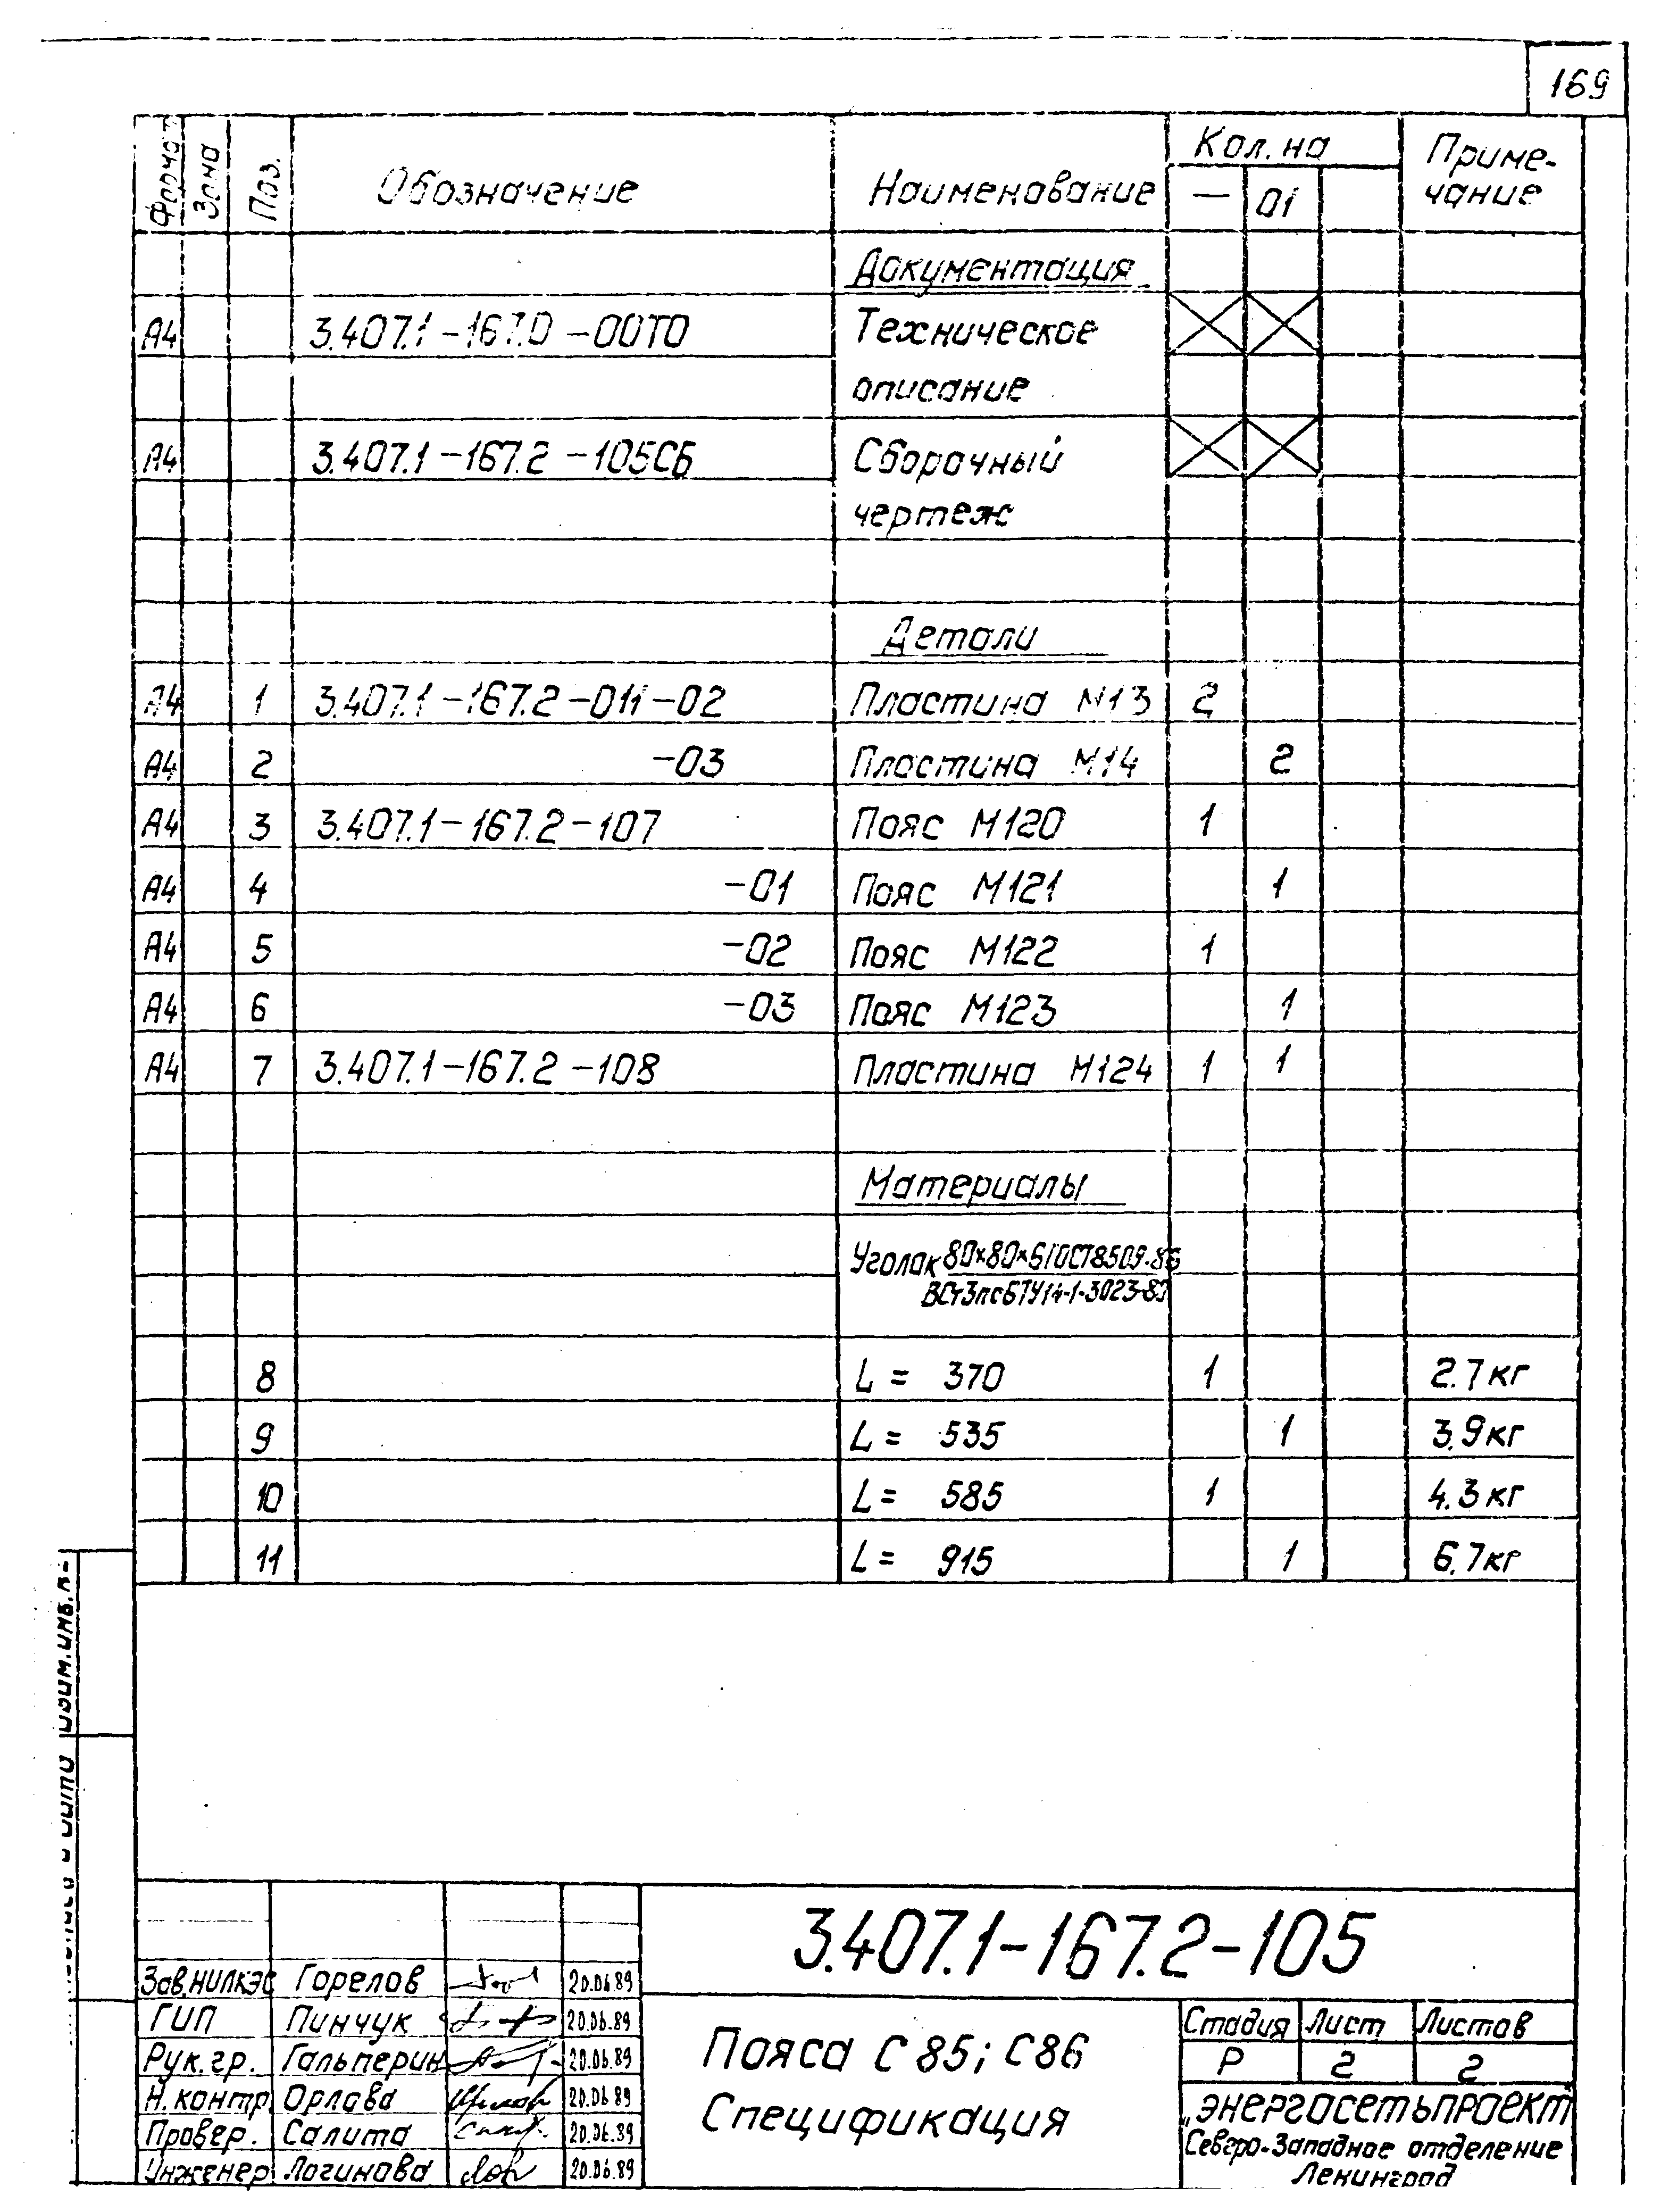 169
Формат Зона Поз. Обозначение Наименование Кол. на Приме-
— 01 чание
Документация
А4 3.407.1-167.0-00ТО Техническое
описание
А4 3.407.1-167.2-105СБ Сборочный
чертеж
Детали
А4 1 3.407.1-167.2-011-02 Пластина М13 2
А4 2 -03 Пластина М14 2
А4 3 3.407.1-167.2-107 Пояс М120 1
А4 4 -01 Пояс М121 1
А4 5 -02 Пояс М122 1
А4 6 -03 Пояс М123 1
А4 7 3.407.1-167.2-108 Пластина М124 1 1
Материалы
Уголок 80×80×6 ГОСТ 8509-86
ВСт3пс6 ТУ14-1-3023-80
8 L = 370 1 2.7кг
9 L = 535 1 3.9кг
10 L = 585 1 4.3кг
11 L = 915 1 6.7кг
Взам.инв.№
3.407.1-167.2-105
Зав.НИЛКЭС Горелов 20.06.89
ГИП Пинчук 20.06.89
Рук.гр. Гальперин 20.06.89
Н.контр. Орлова 20.06.89
Провер. Салита 20.06.89
Инженер Логинова 20.06.89
Пояса С85; С86
Спецификация
Стадия Лист Листов
Р 2 2
„Энергосетьпроект"
Северо-Западное отделение
Ленинград